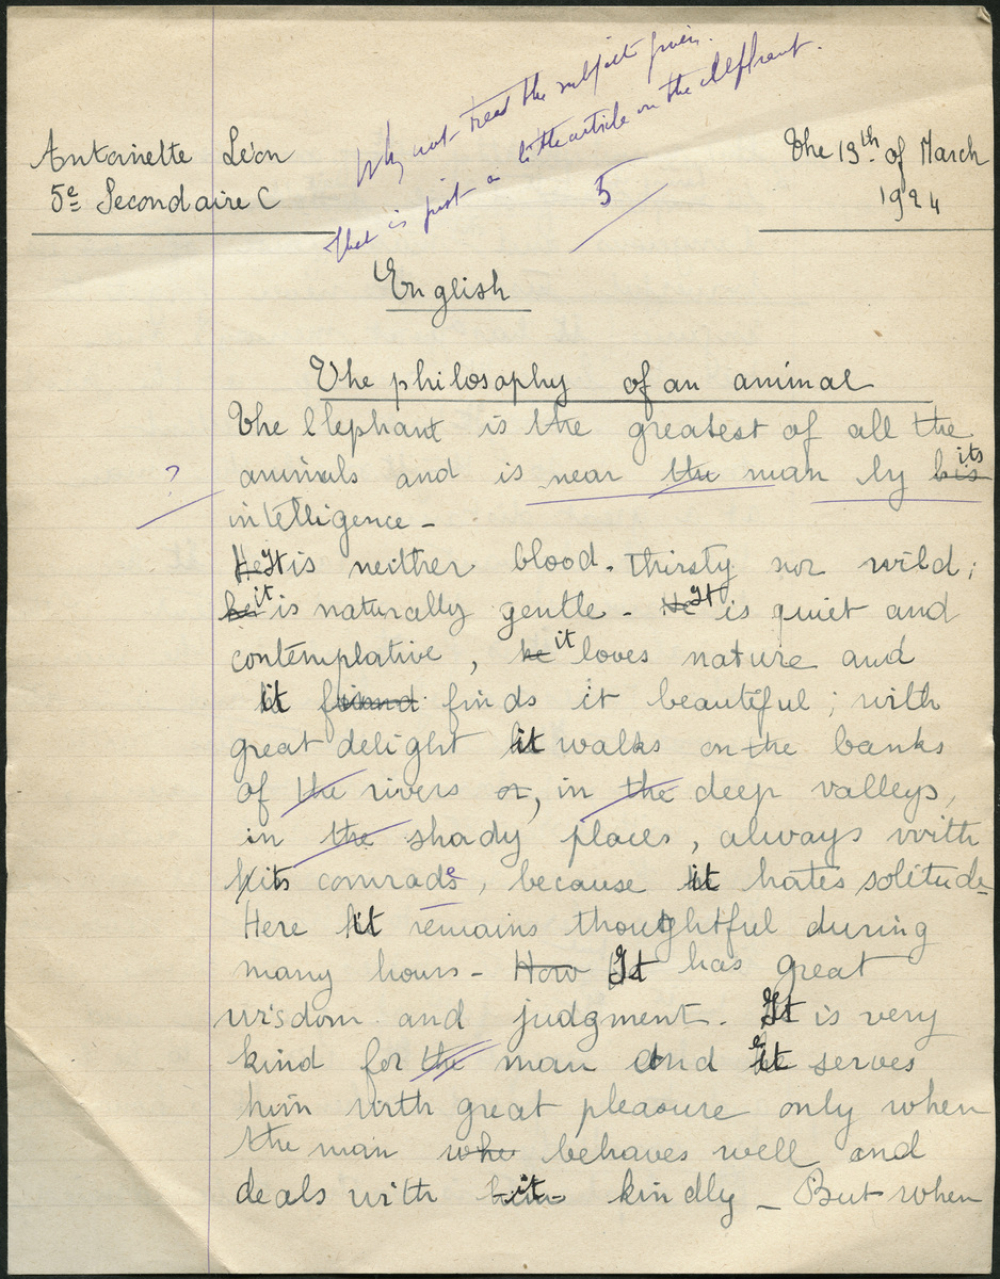 Why not treat the subject given.
That is just a little article on the elephant.
5
Antoinette Léon
5e Secondaire C
The 19th of March
1924
English
The philosophy of an animal
The Elephant is the greatest of all the
animals and is near the man by his its
?
intelligence -
He It is neither blood-thirsty nor wild;
he it is naturally gentle - He It is quiet and
contemplative, he it loves nature and
it friend finds it beautiful; with
great delight it walks on the banks
of the rivers or, in the deep valleys,
in the shady places, always with
its comrades, because it hates solitude
Here it remains thoughtful during
many hours - How It has great
wisdom and judgment. It is very
kind for the man and it serves
him with great pleasure only when
the man who behaves well and
deals with him it kindly - But when